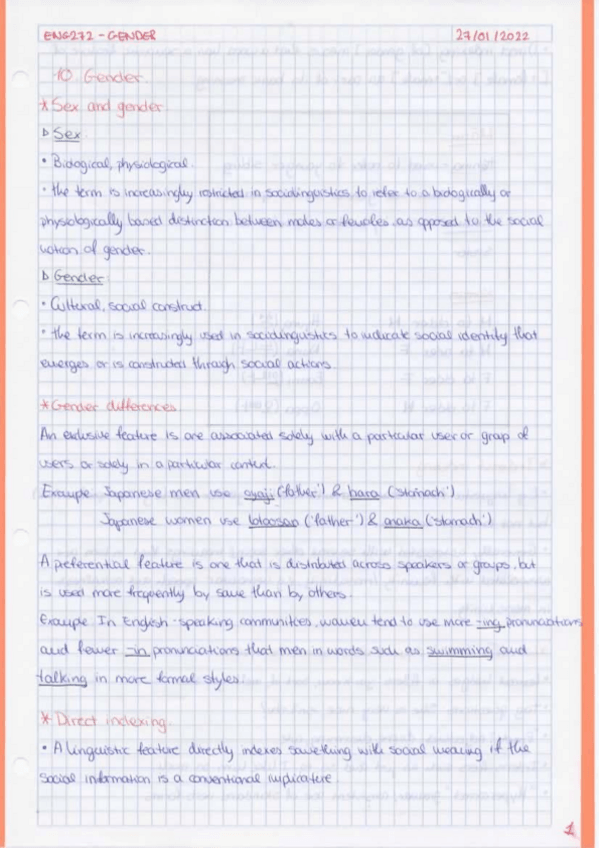 ENG272 - GENDER 27/01/2022
10. Gender.
* Sex and gender.
▷ Sex
• Biological, physiological.
• the term is increasingly restricted in sociolinguistics to refer to a biologically or
physiologically based distinction between males or females, as opposed to the social
notion of gender.
▷ Gender
• Cultural, social construct.
• the term is increasingly used in sociolinguistics to indicate social identity that
emerges or is constructed through social actions.
* Gender differences
An exclusive feature is one associated solely with a particular user or group of
users or solely in a particular context.
Example Japanese men use oyaji ('father') & hara ('stomach')
Japanese women use otoosan ('father') & onaka ('stomach')
A preferential feature is one that is distributed across speakers or groups, but
is used more frequently by some than by others.
Example In English-speaking communities, women tend to use more -ing pronunciations
and fewer -in pronunciations that men in words such as swimming and
talking in more formal styles.
* Direct indexing.
• A linguistic feature directly indexes something with social meaning if the
social information is a conventional implicature.
1